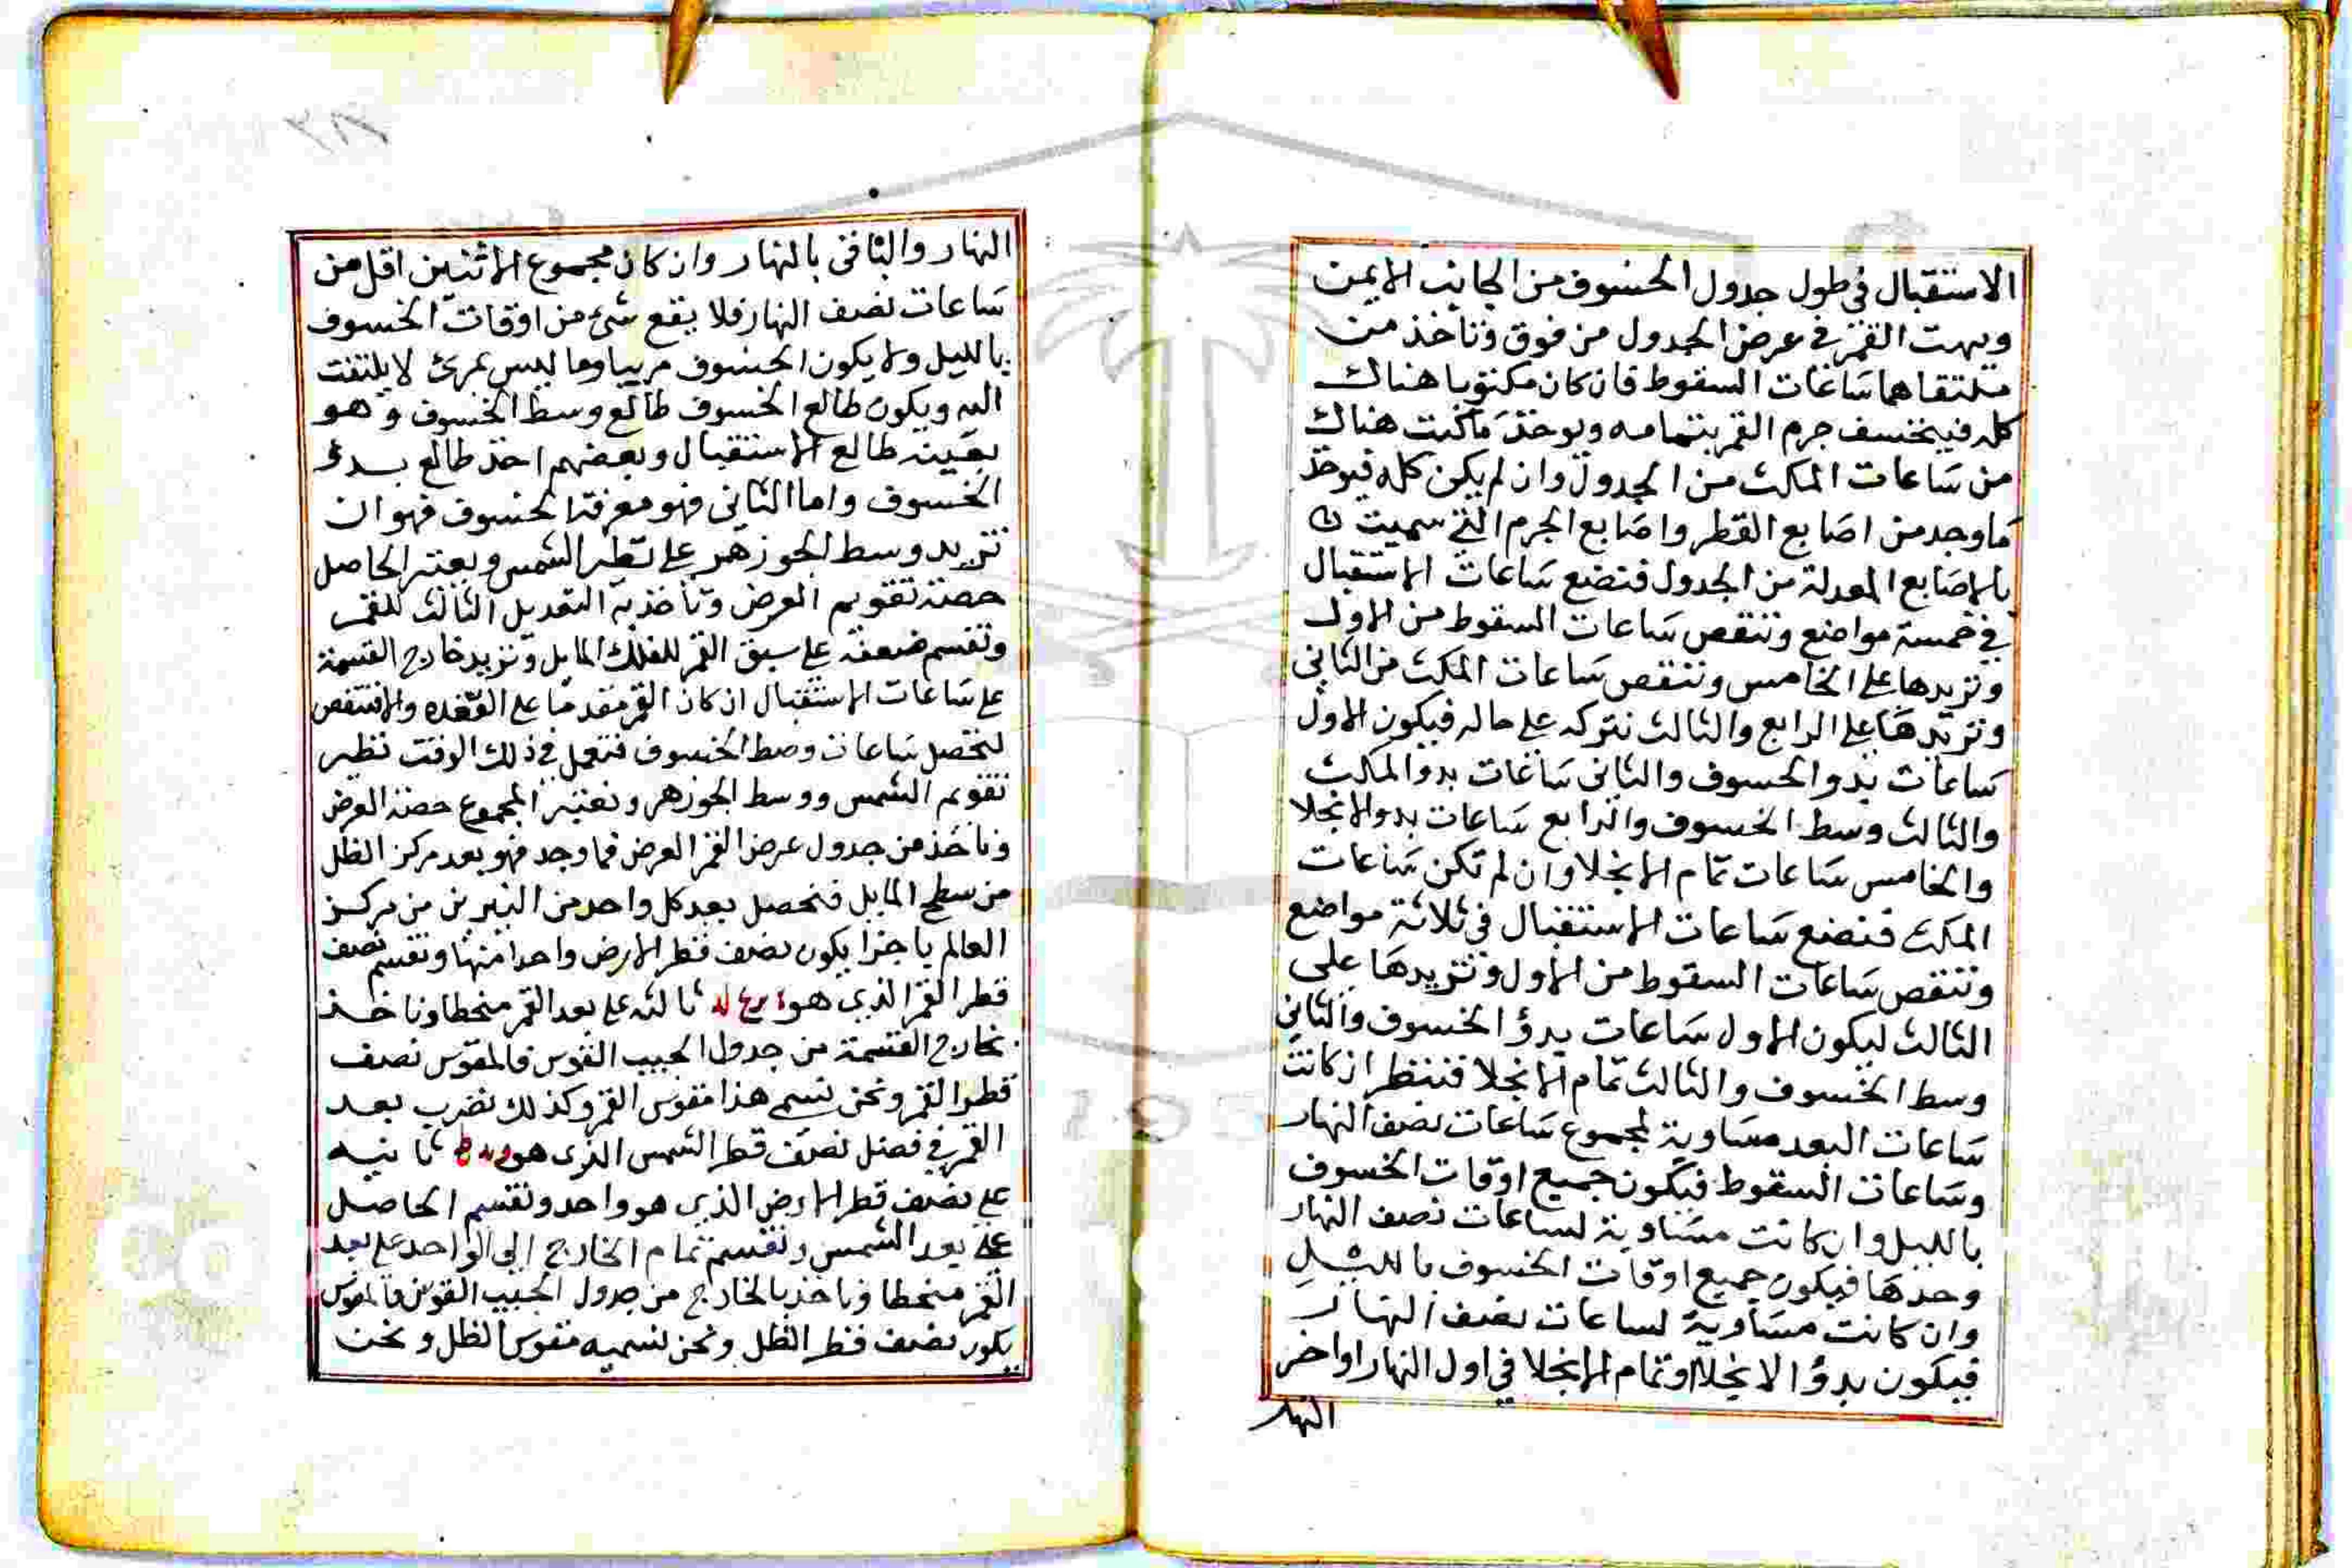 الاستقبال في طول جدول الخسوف من الجانب الايمن
وبهت القمر في عرض الجدول من فوق وناخذ من
ملتقاهما ساعات السقوط فان كان مكتوبا هناك
كله فينخسف جرم القمر بتمامه ويوخذ ما كتب هناك
من ساعات المكث من الجدول وان لم يكن كله فيوخذ
ما وجد من اصابع القطر واصابع الجرم التي سميت
بالاصابع المعدلة من الجدول فنضع ساعات الاستقبال
في خمسة مواضع وننقص ساعات السقوط من الاول
ونزيدها على الخامس وننقص ساعات المكث من الثاني
ونزيدها على الرابع والثالث نتركه على حاله فيكون الاول
ساعات بدو الخسوف والثاني ساعات بدو المكث
والثالث وسط الخسوف والرابع ساعات بدو الانجلا
والخامس ساعات تمام الانجلا وان لم تكن ساعات
المكث فنضع ساعات الاستقبال في ثلاثة مواضع
وننقص ساعات السقوط من الاول ونزيدها على
الثالث ليكون الاول ساعات بدؤ الخسوف والثاني
وسط الخسوف والثالث تمام الانجلا فننظر ان كانت
ساعات البعد مساوية لمجموع ساعات نصف النهار
وساعات السقوط فيكون جميع اوقات الخسوف
بالليل وان كانت مساوية لساعات نصف النهار
وحدها فيكون جميع اوقات الخسوف بالليل
وان كانت مساوية لساعات نصف النهار
فيكون بدؤ الانجلا او تمام الانجلا في اول النهار او اخر
النهار
النهار والباقى بالنهار وان كان مجموع الاثنين اقل من
ساعات نصف النهار فلا يقع شئ من اوقات الخسوف
بالليل ولا يكون الخسوف مرييا وما ليس بمرئ لا يلتفت
اليه ويكون طالع الخسوف طالع وسط الخسوف وهو
بعينه طالع الاستقبال وبعضهم اخذ طالع بدؤ
الخسوف واما الثاني فهو معرفة الخسوف فهو ان
نزيد وسط الجوزهر على نظير الشمس ويعتبر الحاصل
حصة تقويم العرض وناخذ به التعديل الثالث للقمر
ونقسم ضعفه على سبق القمر للفلك المايل ونزيد خارج القسمة
على ساعات الاستقبال ان كان القمر مقدما على العقده والا فننقص
لتحصل ساعات وسط الخسوف فنعمل في ذلك الوقت نظير
تقويم الشمس ووسط الجوزهر ونعتبر المجموع حصة العرض
وناخذ من جدول عرض القمر العرض فما وجد فهو بعد مركز الظل
من سطح المايل فنحصل بعد كل واحد من النيرين من مركز
العالم باجزا يكون نصف قطر الارض واحدا منها ونقسم نصف
قطر القمر الذي هو ثالثه على بعد القمر منحطا وناخذ
بخارج القسمة من جدول الجيب القوس فالمقوس نصف
قطر القمر ونحن نسمى هذا مقوس القمر وكذلك نضرب بعد
القمر في فضل نصف قطر الشمس الذى هو ثانيه
على نصف قطر الارض الذي هو واحد ونقسم الحاصل
على بعد الشمس ونقسم تمام الخارج الى الواحد على بعد
القمر منحطا وناخذ بالخارج من جدول الجيب القوس فالمقوس
يكون نصف قطر الظل ونحن نسميه مقوس الظل ونحن